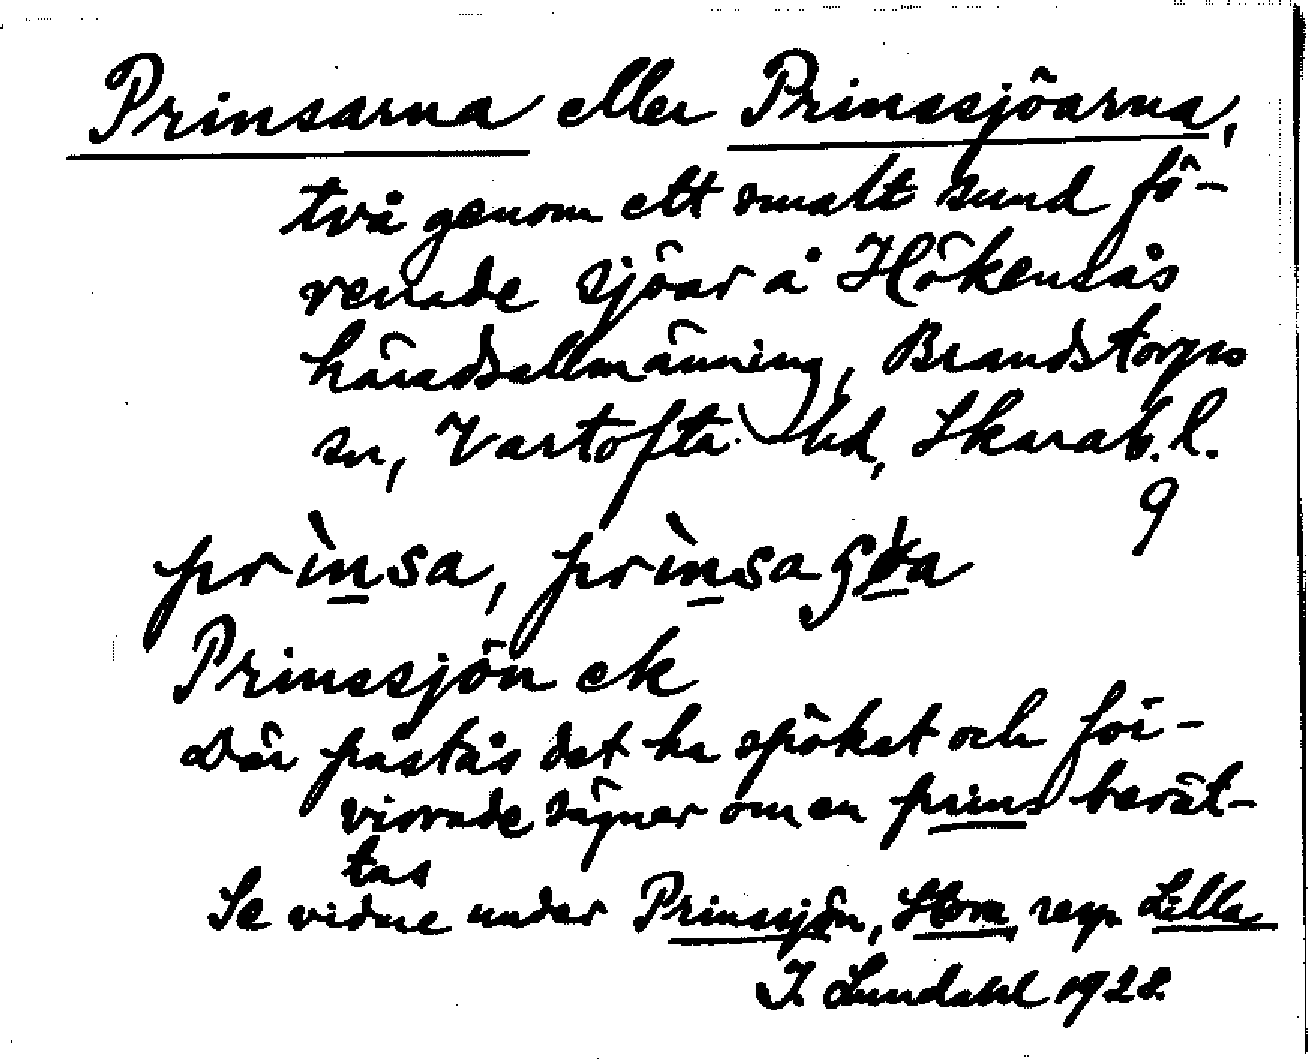 Prinsarna eller Prinssjöarna,
två genom ett smalt sund fö-
renade sjöar å Hökensås
häradsallmänning, Brandstorps
sn, Vartofta hd, Skarab. l.
9
prìnsa, prìnsa
Prinssjön ek
Där påstås det ha spökat och för-
virrade sägner om en prins berät-
tas
Se vidare under Prinssjön, Stora, resp. Lilla
I. Lundahl 1928.